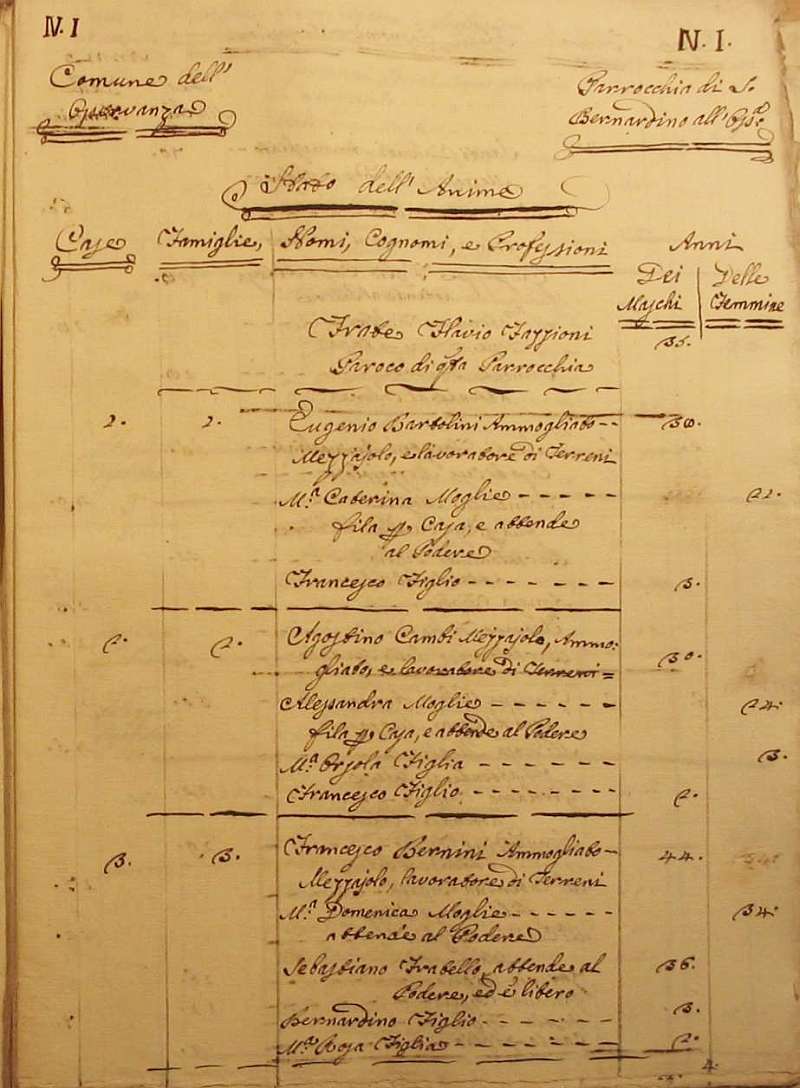 N. I
N. I.
Comune dell'
Osservanza
Parrocchia di S.
Bernardino all'Oss.a
Stato dell'Anime
Case Famiglie, Nomi, Cognomi, e Professioni Anni
Dei Delle
Maschi Femmine
Frate Flavio Fazzioni 35.
Paroco di q.sta Parrocchia
Eugenio Bartolini Ammogliato
Mezzajolo, e lavoratore di Terreni
M.a Caterina Moglie 22.
fila p Casa, e attende
al Podere
Francesco Figlio 3.
2. 2. Agostino Cambi Mezzajolo, Ammo-
gliato, e lavoratore di Terreni 30.
Alessandra Moglie 24.
fila p Casa, e attende al Podere
M.a Orsola Figlia 3.
Francesco Figlio 2.
3. 3. Francesco Bernini Ammogliato 44.
Mezzajolo, lavoratore di Terreni
M.a Domenica Moglie 34.
attende al Podere
Sebastiano Fratello, attende al 36.
Podere, ed è libero
Bernardino Figlio 3.
M.a Rosa Figlia 2.
4.